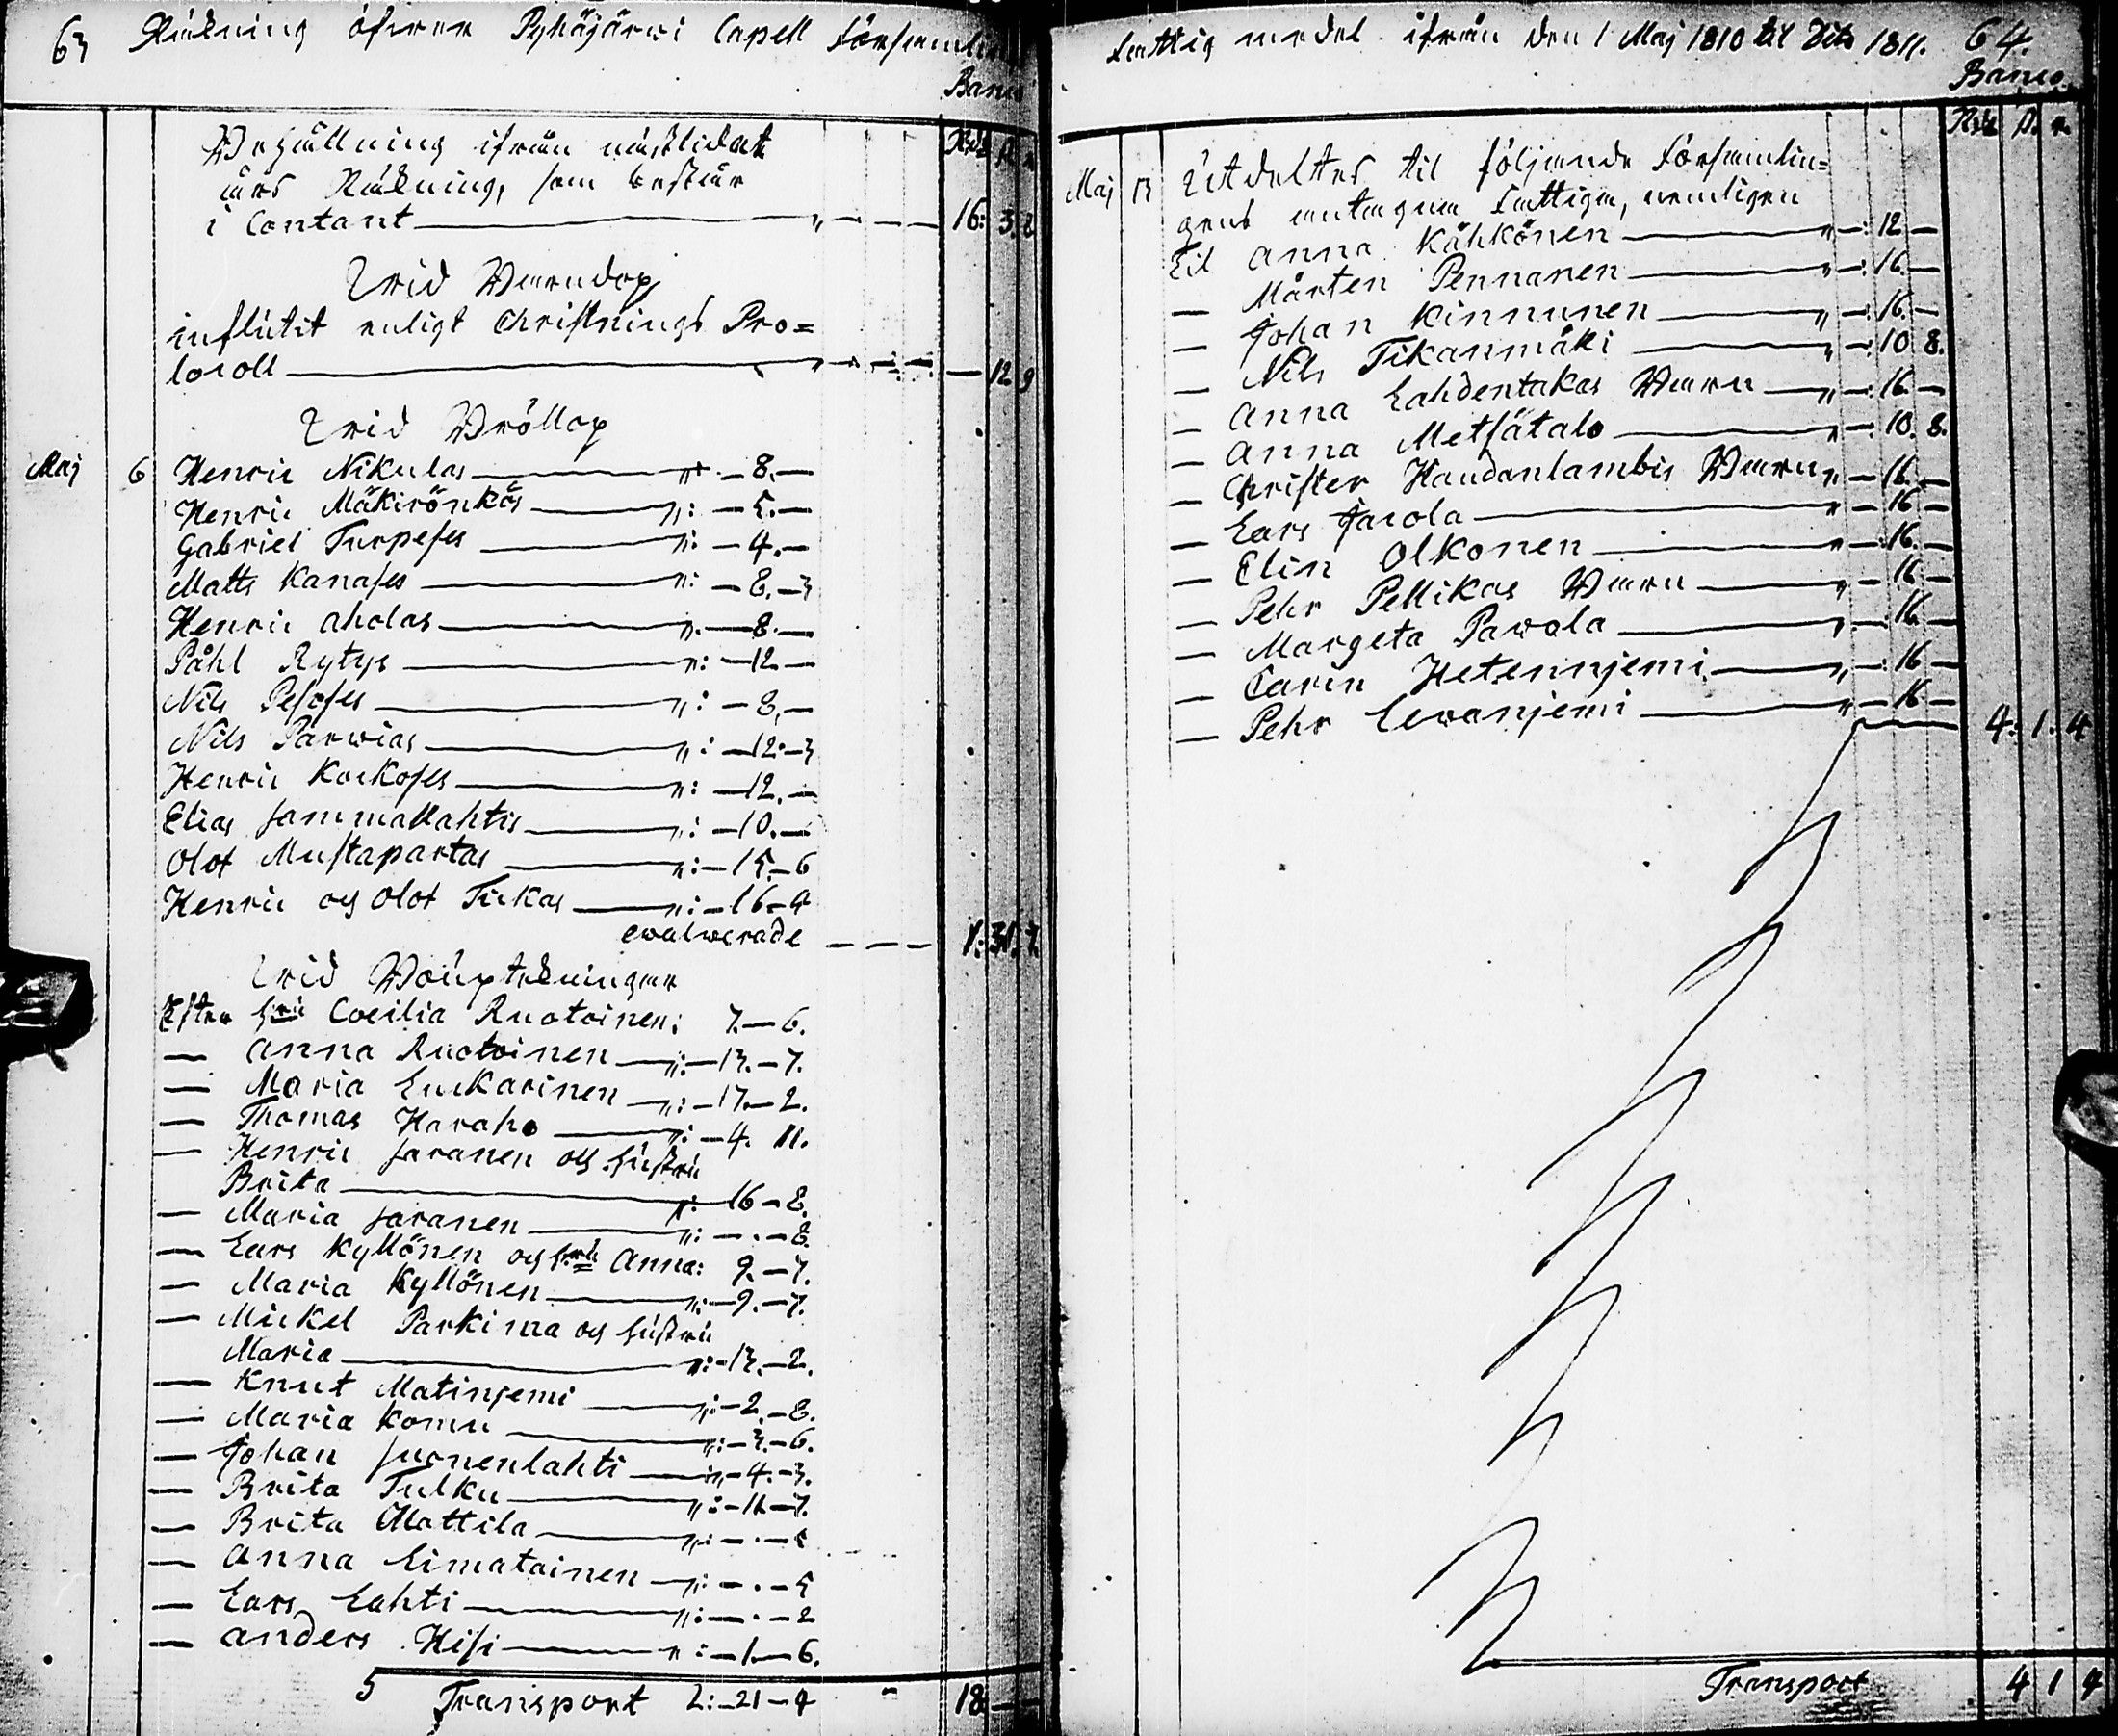 63 Räkning öfver Pyhäjärwi Capell Församlin
Banco
Behållning ifrån nästlidat
års Räkning, som består
i Contant — 16: 3. 8
Wid Barndop
influtit enligt Christnings Pro=
tocoll — 12 9
Wid Bröllop
Maj 6 Henric Nikulas — 8. —
Henric Mäkirönkös — 5. —
Gabriel Turpeses — 4. —
Matts Kanases — 8. — 3
Henric Aholas — 8. —
Påhl Rytys — 12 —
Nils Pesoses — 8. —
Nils Parwias — 12. — 3
Henric Korkoses — 12. —
Elias Sammallahtis — 10. —
Olof Mustapartas — 15. — 6
Henric och Olof Tukas — 16 — 9
ewalverade — 1: 31. 7.
Wid Bouptekningar
Efter hru Coecilia Ruotoinen: 7. — 6.
— Anna Ruotoinen — 13. — 7.
— Maria Luckarinen — 17. — 2.
— Thomas Haraho — 4. 11.
— Henric Saranen och hustru
Brita — 16 — 8.
— Maria Saranen — . — 8.
— Lars Kyllönen och hru Anna: 9. — 7.
— Maria Kyllönen — 9. — 7.
— Mickel Parkima och hustru
Maria — 13. — 2.
— Knut Matinjemi — 2. — 8.
— Maria Komu — 3. — 6.
— Johan Suonenlahti — 4. — 3.
— Brita Tulku — 11. — 7.
— Brita Mattila — . —
— Anna Limatainen — . — 5
— Lars Lahti — . — 2
— Anders Hisi — 1. — 6.
5 Transport 2: — 21 — 4 18: —
Fattig medel ifrån den 1 Maj 1810 til Dito 1811. 64.
Banco
Rdr s. r.
Maj 13 Utdeltes til följande Församlin=
gens antagna Fattiga, nemligen
Til Anna Kähkönen — : 12 —
— Mårten Pennanen — : 16. —
— Johan Kinnunen — : 16. —
— Nils Tikanmäki — : 10 8.
— Anna Lahdentakas Barn — : 16 —
— Anna Metsätalo — : 10. 8.
— Christer Haudanlambis Barn — 16. —
— Lars Jacola — 16 —
— Elin Olkonen — : 16. —
— Pehr Pellikas Barn — 16 —
— Margeta Parvola — : 16. —
— Carin Hetennjemi — : 16 —
— Pehr Lewanjemi — 16 —
4: 1. 4
Transport 4 1 4